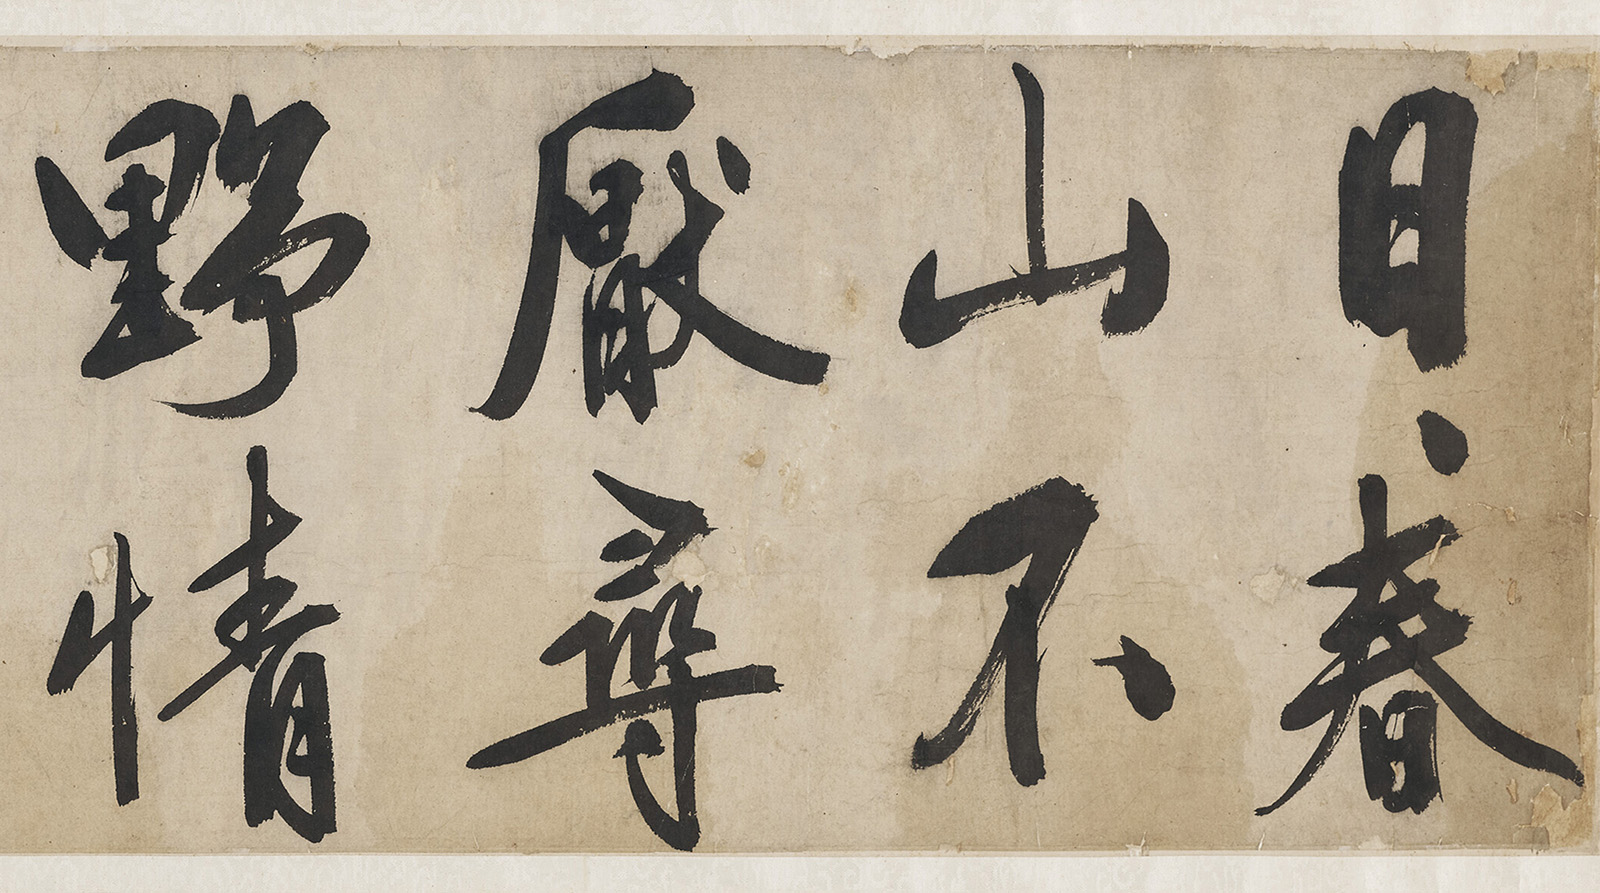 日、春
山不
厭尋
野情